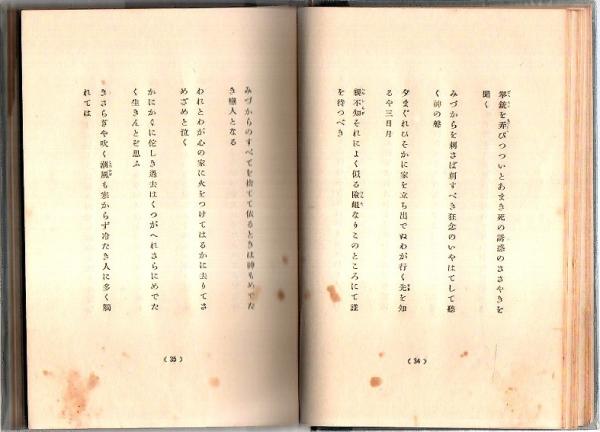 拳銃を弄びつついとあまき死の誘惑のささやきを
聞く
みづからを刺さば刺すべき狂念のいやはてにして聴
く神の聲
夕まぐれひそかに家を立ち出でぬわが行く先を知
るや三日月
親不知それによく似る險岨なりこのところにて誰
を待つべき
(34)
みづからのすべてを捨てて依るときは神もめでた
き戀人となる
われとわが心の家に火をつけてはるかに去りてさ
めざめと泣く
かにかくに佗しき過去はくつがへれさらにめでた
く生きんとぞ思ふ
きさらぎや吹く潮風も寒からず冷たき人に多く觸
れては
(35)